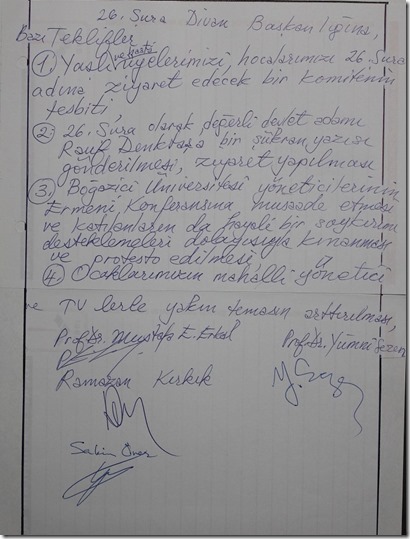 26. Şura Divan Başkanlığına,
Bazı Teklifler
ve hasta
1. Yaşlı üyelerimizi, hocalarımızı 26. Şura
adına ziyaret edecek bir komitenin
tesbiti,
2. 26. Şura olarak değerli devlet adamı
Rauf Denktaşa bir şükran yazısı
gönderilmesi, ziyaret yapılması
3. Boğaziçi Üniversitesi yöneticilerinin
Ermeni Konferansına müsaade etmesi
ve katılanların da hayali bir soykırımı
desteklemeleri dolayısıyla kınanması
ve protesto edilmesi
4. Ocaklarımızın mahalli yönetici
ve TV lerle yakın temasın arttırılması,
Prof. Dr. Mustafa E. Erkal Prof. Dr. Yümni Sezen
Ramazan Kırkık
Sakin Öner